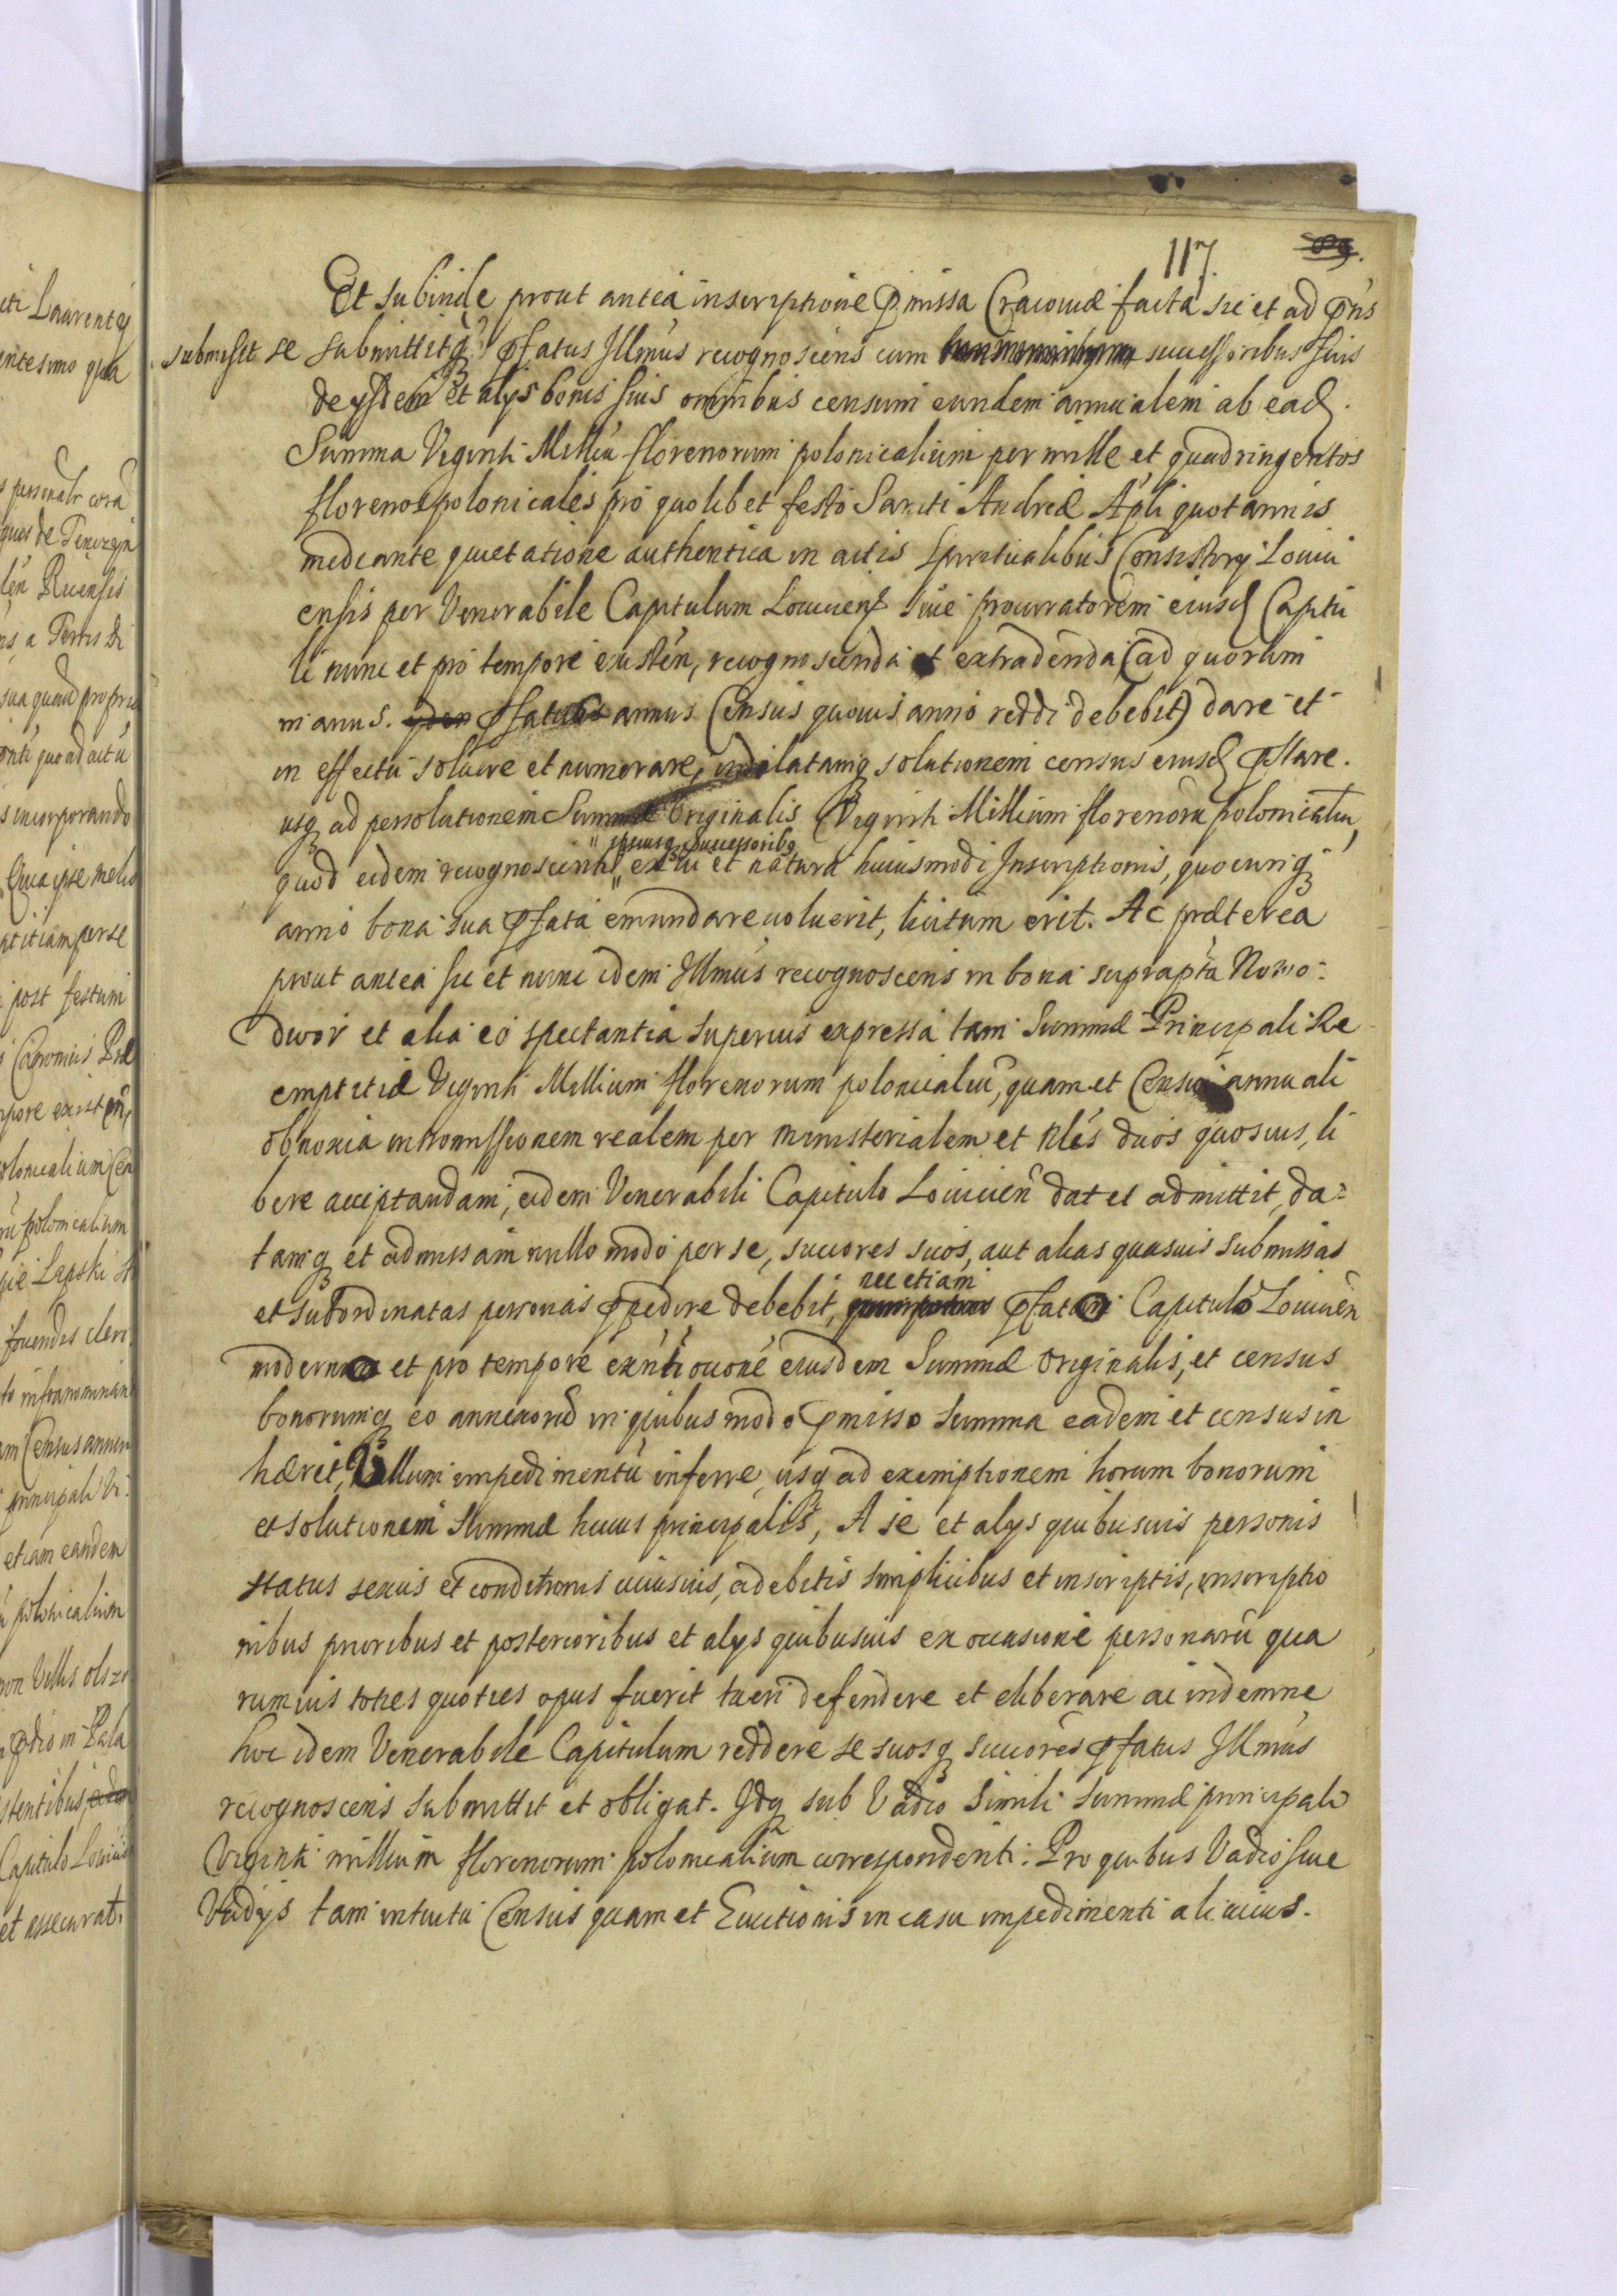 117.
Et subinde prout antea inscriptione pmissa Cracouiæ facta sic et ad pñs
submisit se submittitq pfatus Illmus recognoscens cum successoribus suis
de ysdem et alys bonis suis omnibus censum eundem annualem ab ead
Summa Viginti Milliu florenorum polonicalium per mille et quadringentos
florenos polonicales pro quolibet festo Sancti Andreæ Apli quotannis
mediante quietatione authentica in actis Spiritualibus Consistory Louici
ensis per Venerabile Capitulum Louicien siue procuratorem eiusd Capitu
li nunc et pro tempore existen, recognoscenda et extradenda (ad quorum
manus pfatus annus Census quouis anno reddi debebit) dare et
in effectu soluere et numerare, indilatamq solutionem census eiusd pstare
usq ad persolutionem Summæ Originalis Viginti Millium florenoru polonicaliu,
ipsiusq successoribq
quod eidem recognoscenti ex ui et natura huiusmodi Inscriptionis, quocunq
anno bona sua pfata emundare uoluerit, licitum erit. Ac præterea
prout antea sic et nunc idem Illmus recognoscens in bona suprapta Nowo-
dwor et alia eo spectantia superius expressa tam Summæ Principali Re
emptitiæ Viginti Millium florenorum polonicaliu, quam et Censui annuali
obnoxia intromissionem realem per ministerialem et Nles duos quosuis, li
bere acceptandam, eidem Venerabili Capitulo Louicien dat et admittit, da-
tamq et admissam nullo modo per se, succores suos, aut alias quasuis submissas
nec etiam
et subordinatas personas ppedire debebit, pfato Capitulo Louicien
moderno et pro tempore exñti ouone eiusdem Summæ Originalis, et census
bonorumq eo annexoru in quibus modo pmisso summa eadem et census in
hæret, Vllum impedimentu inferre, usq ad exemptionem horum bonorum
et solutionem Summæ huius principalis, A se et alys quibusuis personis
status sexus et conditionis cuiusuis, a debitis simplicibus et inscriptis, inscriptio
nibus prioribus et posterioribus et alys quibusuis ex occasione personaru qua
rumuis toties quoties opus fuerit tueri defendere et eliberare ac indemne
hoc idem Venerabile Capitulum reddere se suosq succores pfatus Illmus
recognoscens submittit et obligat. Idq sub Vadio simili summæ principali
Viginti millium florenorum polonicalium correspondenti. Pro quibus Vadio siue
Vadys tam intuitu Census quam et Euictionis in casu impedimenti alicuius